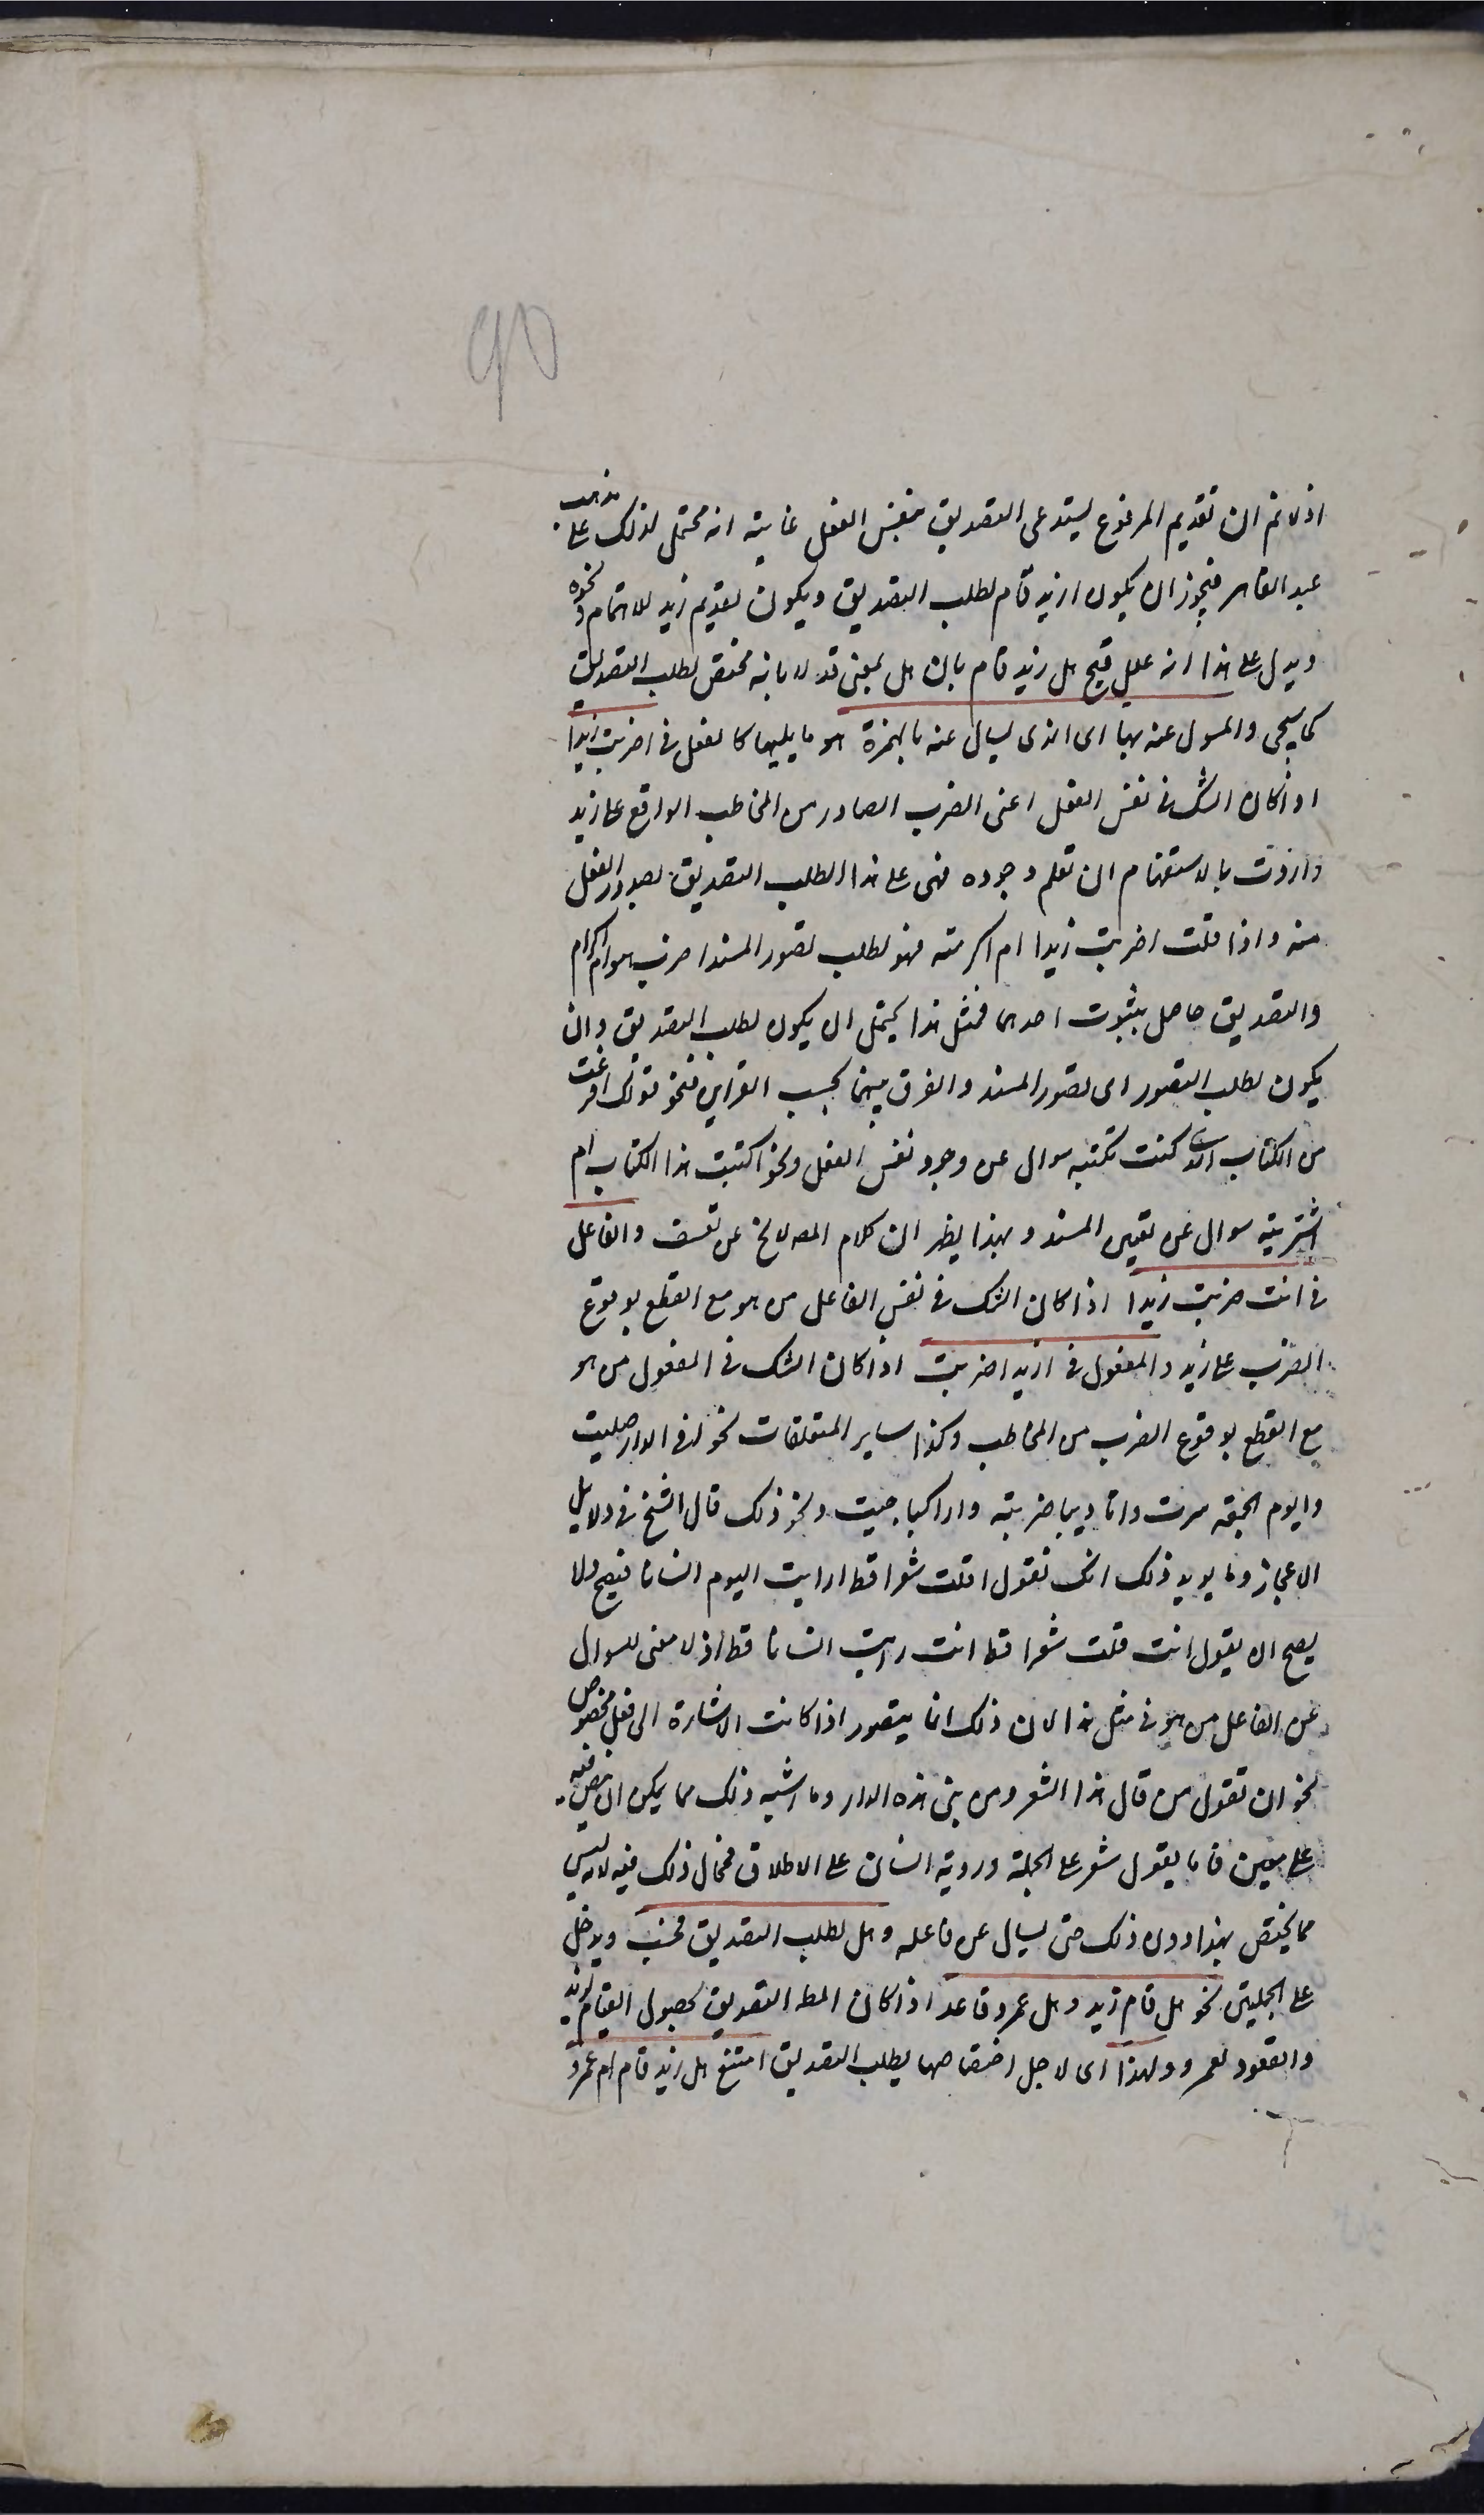 90
اذ لا نم ان تقديم المرفوع يستدعى التصديق بنفس الفعل غايته انه محتمل لذلك على مذهب
عبد القاهر فيجوز ان يكون ازيد قام لطلب التصديق ويكون تقديم زيد للاهتمام ونحوه
ويدل على هذا انه علل قبح هل زيد قام بان هل بمعنى قد لا بانه مختص لطلب التصديق
كما سيجى والمسول عنه بها اى الذى يسال عنه بالهمزة هو ما يليها كالفعل فى اضربت زيدا
اذا كان الشك فى نفس الفعل اعنى الضرب الصادر من المخاطب الواقع على زيد
واردت بالاستفهام ان تعلم وجوده فهى على هذا لطلب التصديق بصدور الفعل
منه واذا قلت اضربت زيدا ام اكرمته فهو لطلب تصور المسند اضرب هو ام اكرام
والتصديق حاصل بثبوت احدهما فمثل هذا يحتمل ان يكون لطلب التصديق وان
يكون لطلب التصور اى تصور المسند والفرق بينهما بحسب القراين فنحو قولك افرغت
من الكتاب الذى كنت تكتبه سوال عن وجود نفس الفعل ونحو اكتبت هذا الكتاب ام
اشتريته سوال عن تعيين المسند وبهذا يظهر ان كلام المص لا يخ عن تعسف والفاعل
فى انت ضربت زيدا اذا كان الشك فى نفس الفاعل من هو مع القطع بوقوع
الضرب على زيد والمفعول فى ازيدا ضربت اذا كان الشك فى المفعول من هو
مع القطع بوقوع الضرب من المخاطب وكذا ساير المتعلقات نحو افى الدار صليت
وايوم الجمعة سرت واتاديبا ضربته واراكبا جيت ونحو ذلك قال الشيخ فى دلايل
الاعجاز ومما يويد ذلك انك تقول اقلت شعرا قط ارايت اليوم انسانا فيصح ولا
يصح ان يقول انت قلت شعرا قط انت رايت انسانا قط اذ لا معنى للسوال
عن الفاعل من هو فى مثل هذا لان ذلك انما يتصور اذا كانت الاشارة الى فعل مخصوص
نحو ان تقول من قال هذا الشعر ومن بنى هذه الدار وما اشبه ذلك مما يمكن ان ينص فيه
على معين فاما يقول شعر على الجملة وروية انسان على الاطلاق فمحال ذلك فيه لانه ليس
مما يختص بهذا دون ذلك حتى يسال عن فاعله وهل لطلب التصديق فحسب ويدخل
على الجملتين نحو هل قام زيد وهل عمرو قاعد اذا كان المط التصديق بحصول القيام لزيد
والقعود لعمرو ولهذا اى لاجل اختصاصها بطلب التصديق امتنع هل زيد قام ام عمرو